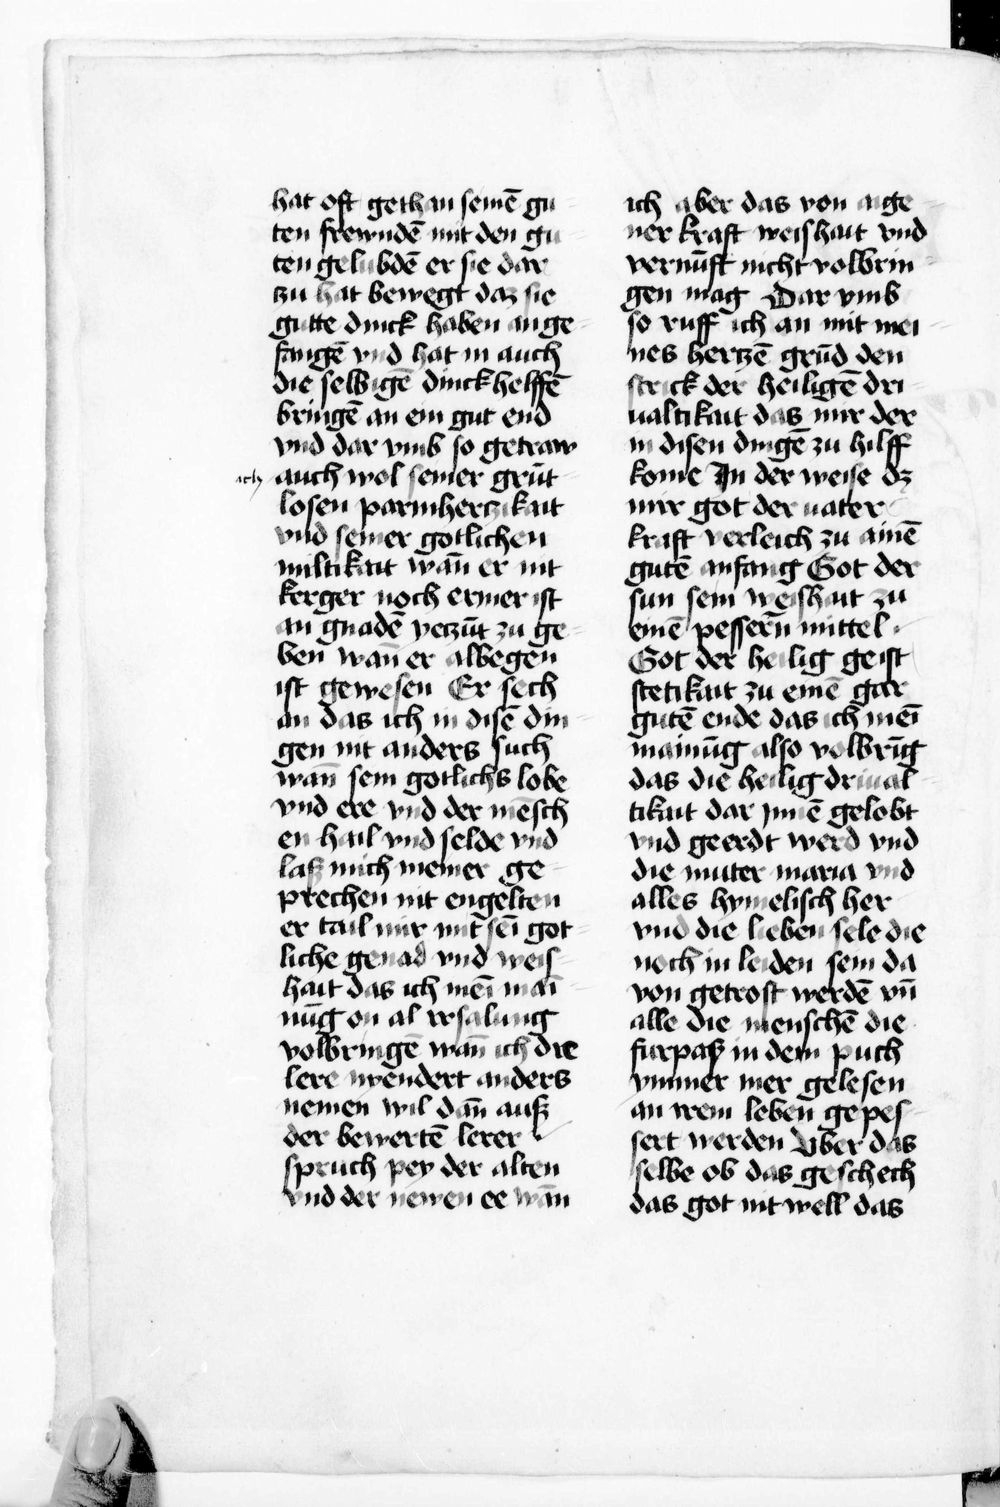 hat oft gethan seinē gu
ten frewndē mit den gu
ten gelubdē er sie dar
zu hat bewegt daz sie
gutte dinck haben ange-
fangē vnd hat in auch
die selbigē dinck helffē
bringē an ein gut end
vnd dar vmb so getraw
ich auch wol seiner grūt-
losen parmherczikait
vnd seiner gotlichen
miltikait wān er nit
kerger noch ermer ist
an gnadē yeczūt zu ge-
ben wān er albegen
ist gewesen Er sech
an das ich in disē din-
gen nit anders such
wān sein gotlichs lobe
vnd ere vnd der mēsch
en hail vnd selde vnd
laß mich meiner ge-
prechen nit engelten
er tail mir mit seī got-
liche genad vnd weis-
hait das ich meī mai-
nūg on al irsalung
volbringē wān ich die
lere nyendert anders
nemen wil dān auß
der bewertē lerer
spruch pey der alten
vnd der newen ee wān
ich aber das von aige-
ner kraft weishait vnd
vernūft nicht volbrin-
gen mag Dar vmb
so ruff ich an mit mei-
nes herczē grūd den
strick der heiligē dri-
ualtikait das mir der
in disen dingē zu hilff
kome In der weise dz
mir got der uater
kraft verleich zu ainē
gutē anfang Got der
sun sein weishait zu
einē pesserñ mittel
Got der heilig geist
stetikait zu einē gar
gutē ende das ich meī
mainūg also volbrīg
das die heilig driual-
tikait dar innē gelobt
vnd geerdt werd vnd
die muter maria vnd
alles hymelisch her
vnd die lieben sele die
noch in leiden sein da
von getrost werdē vñ
alle die menschē die
furpaß in dem puch
ymmer mer gelesen
an irem leben gepes-
sert werden Vber das
selbe ob das geschech
das got nit well das